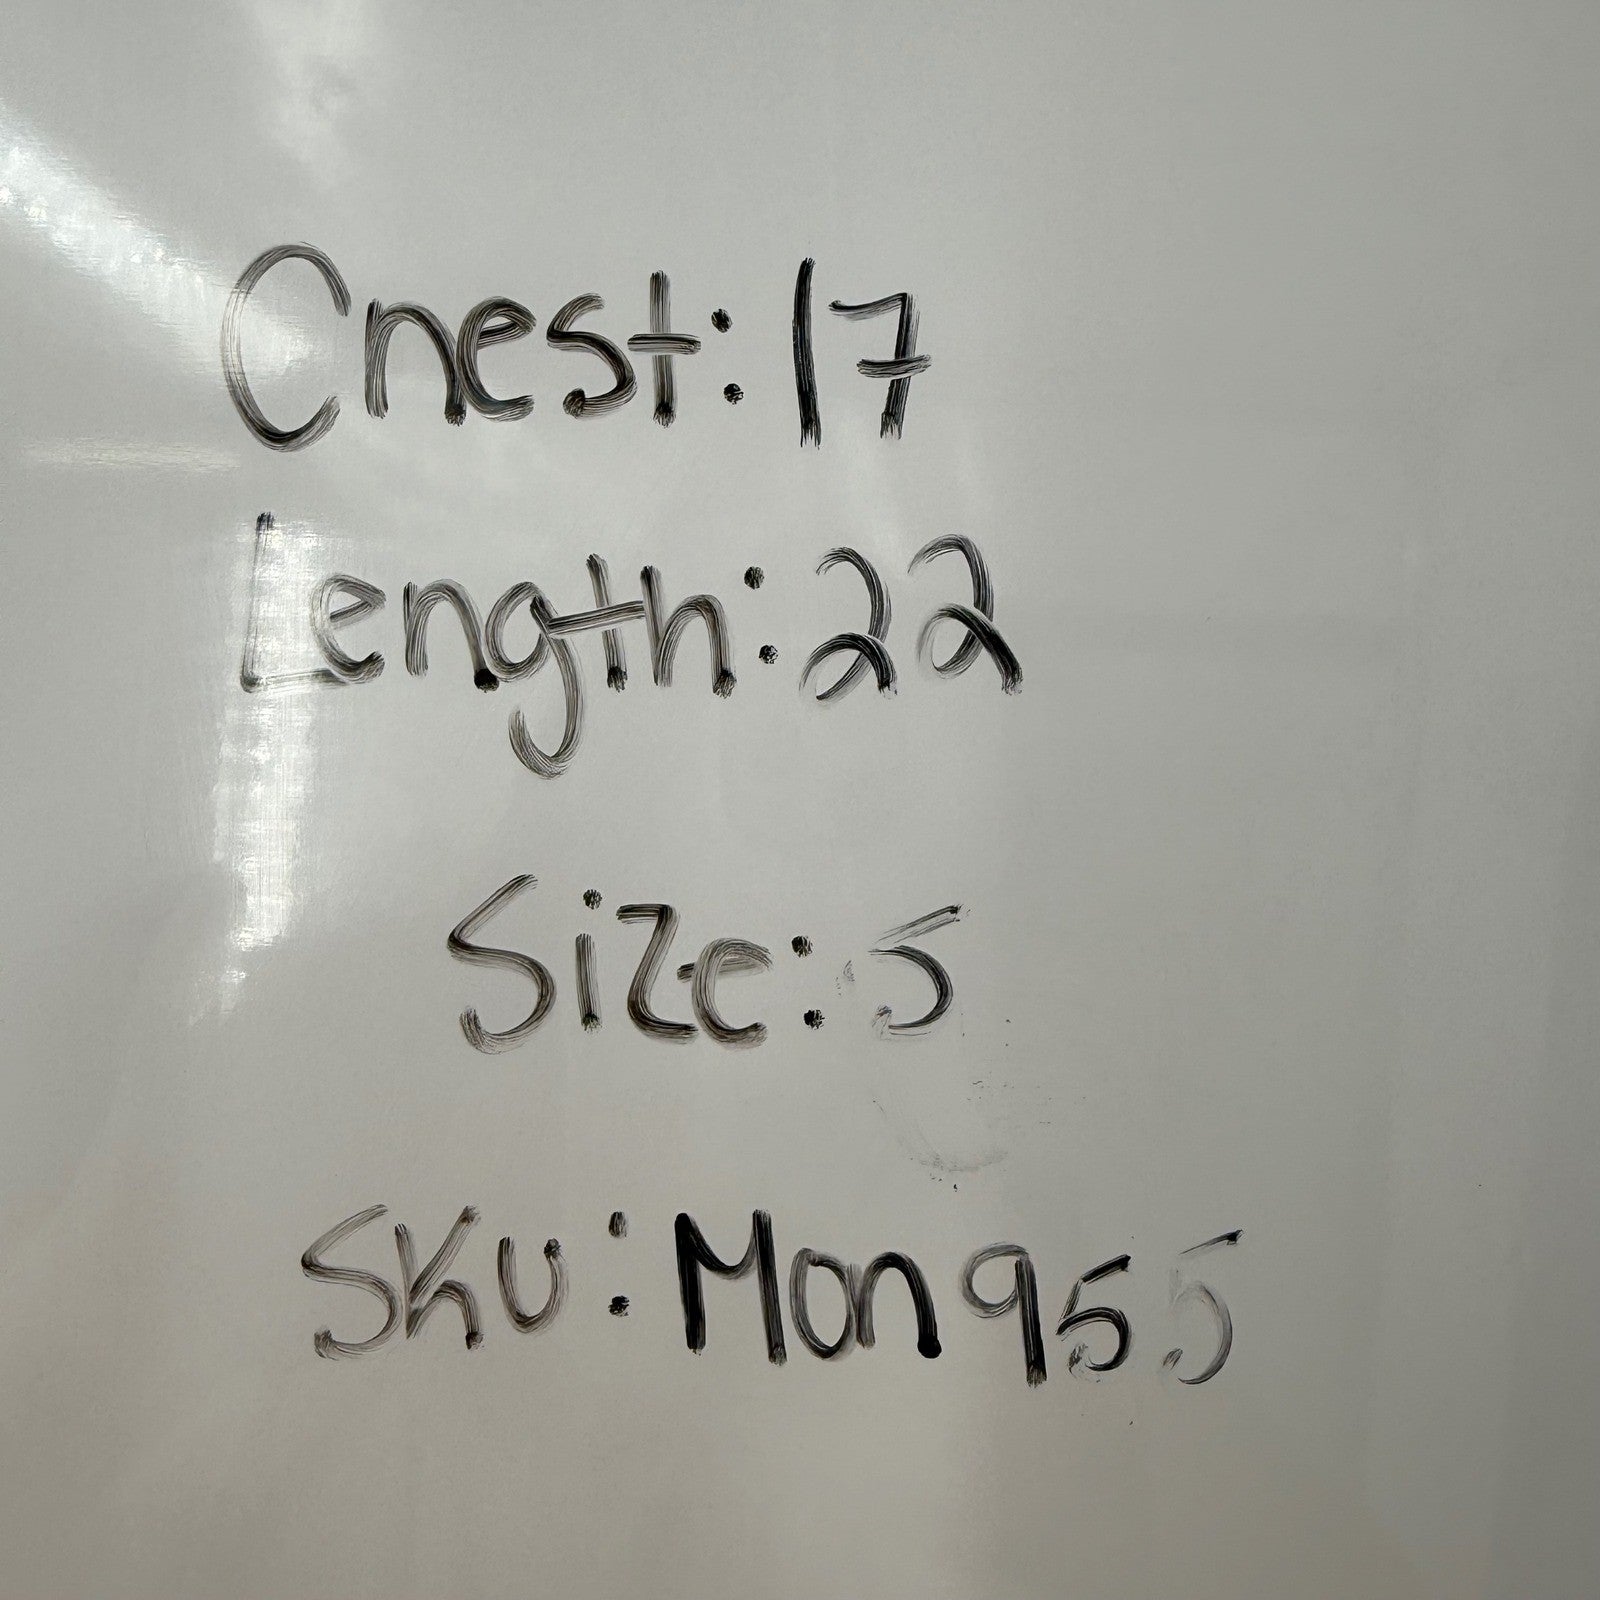 Chest: 17
Length: 22
Size: S
SKU: Mon955